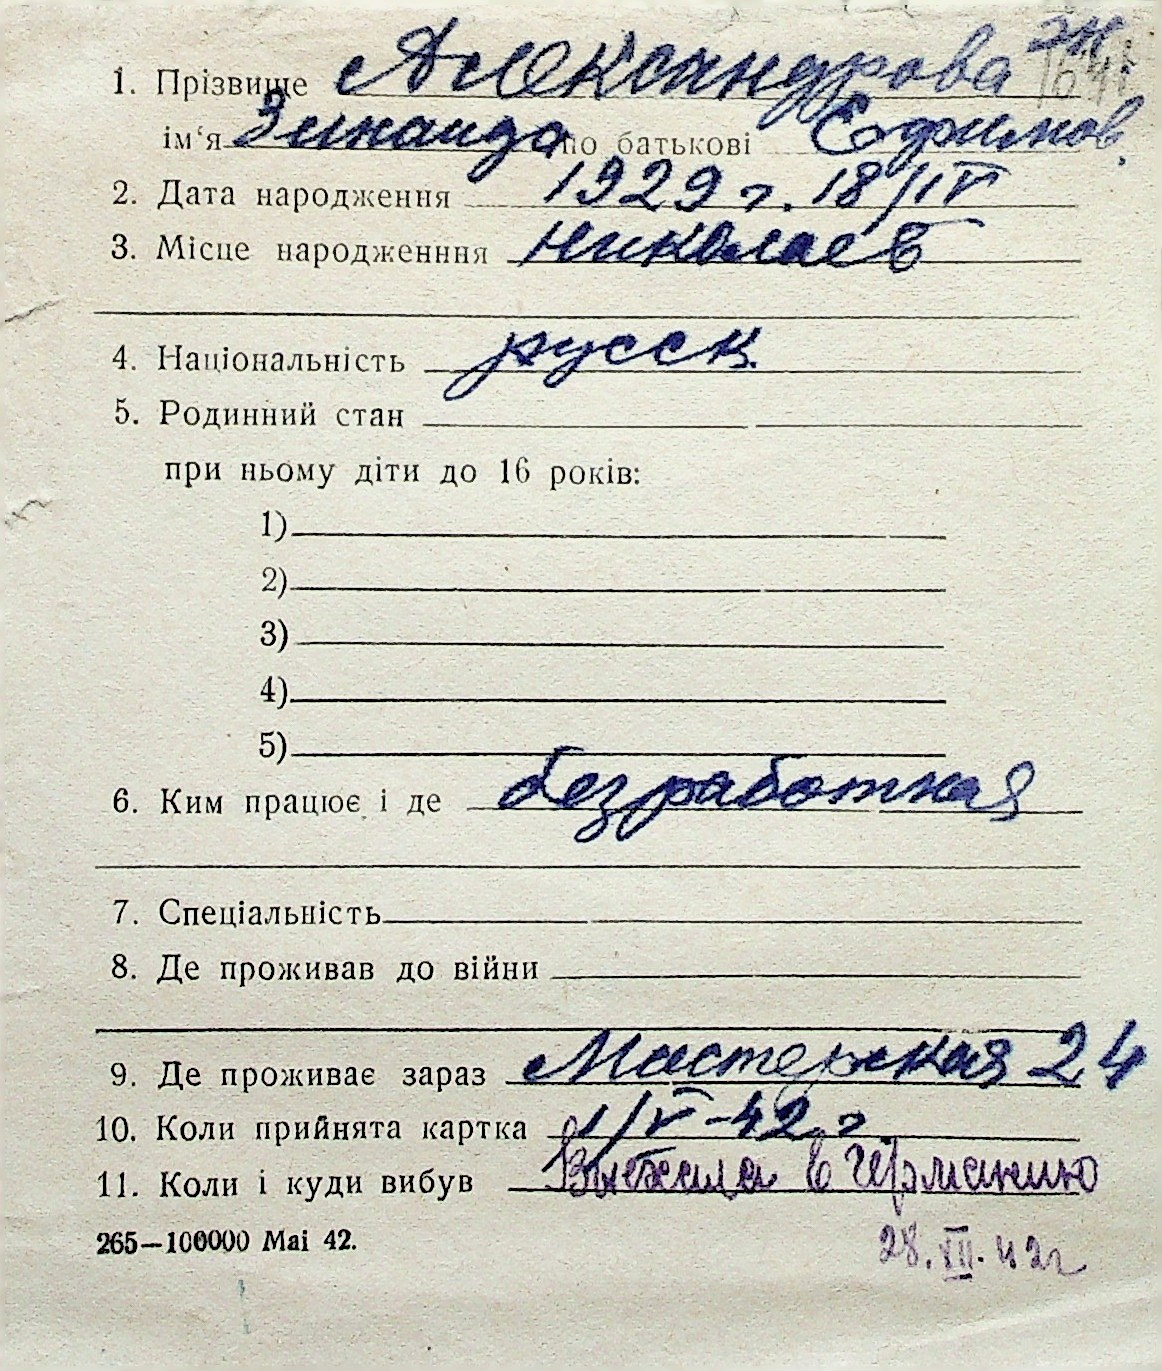 1. Прізвище Александрова
ім‘я Зинаида по батькові Ефимов.
2. Дата народження 1929 г. 18/IV
3. Місце народженння Николаев
4. Національність русск.
5. Родинний стан
при ньому діти до 16 років:
1)
2)
3)
4)
5)
6. Ким працює і де безработная
7. Спеціальність
8. Де проживав до війни
9. Де проживає зараз Мастерская 24
10. Коли прийнята картка 1/V-42 г
11. Коли і куди вибув Выехала в Германию
265—100000 Mai 42.
28.XII.42г